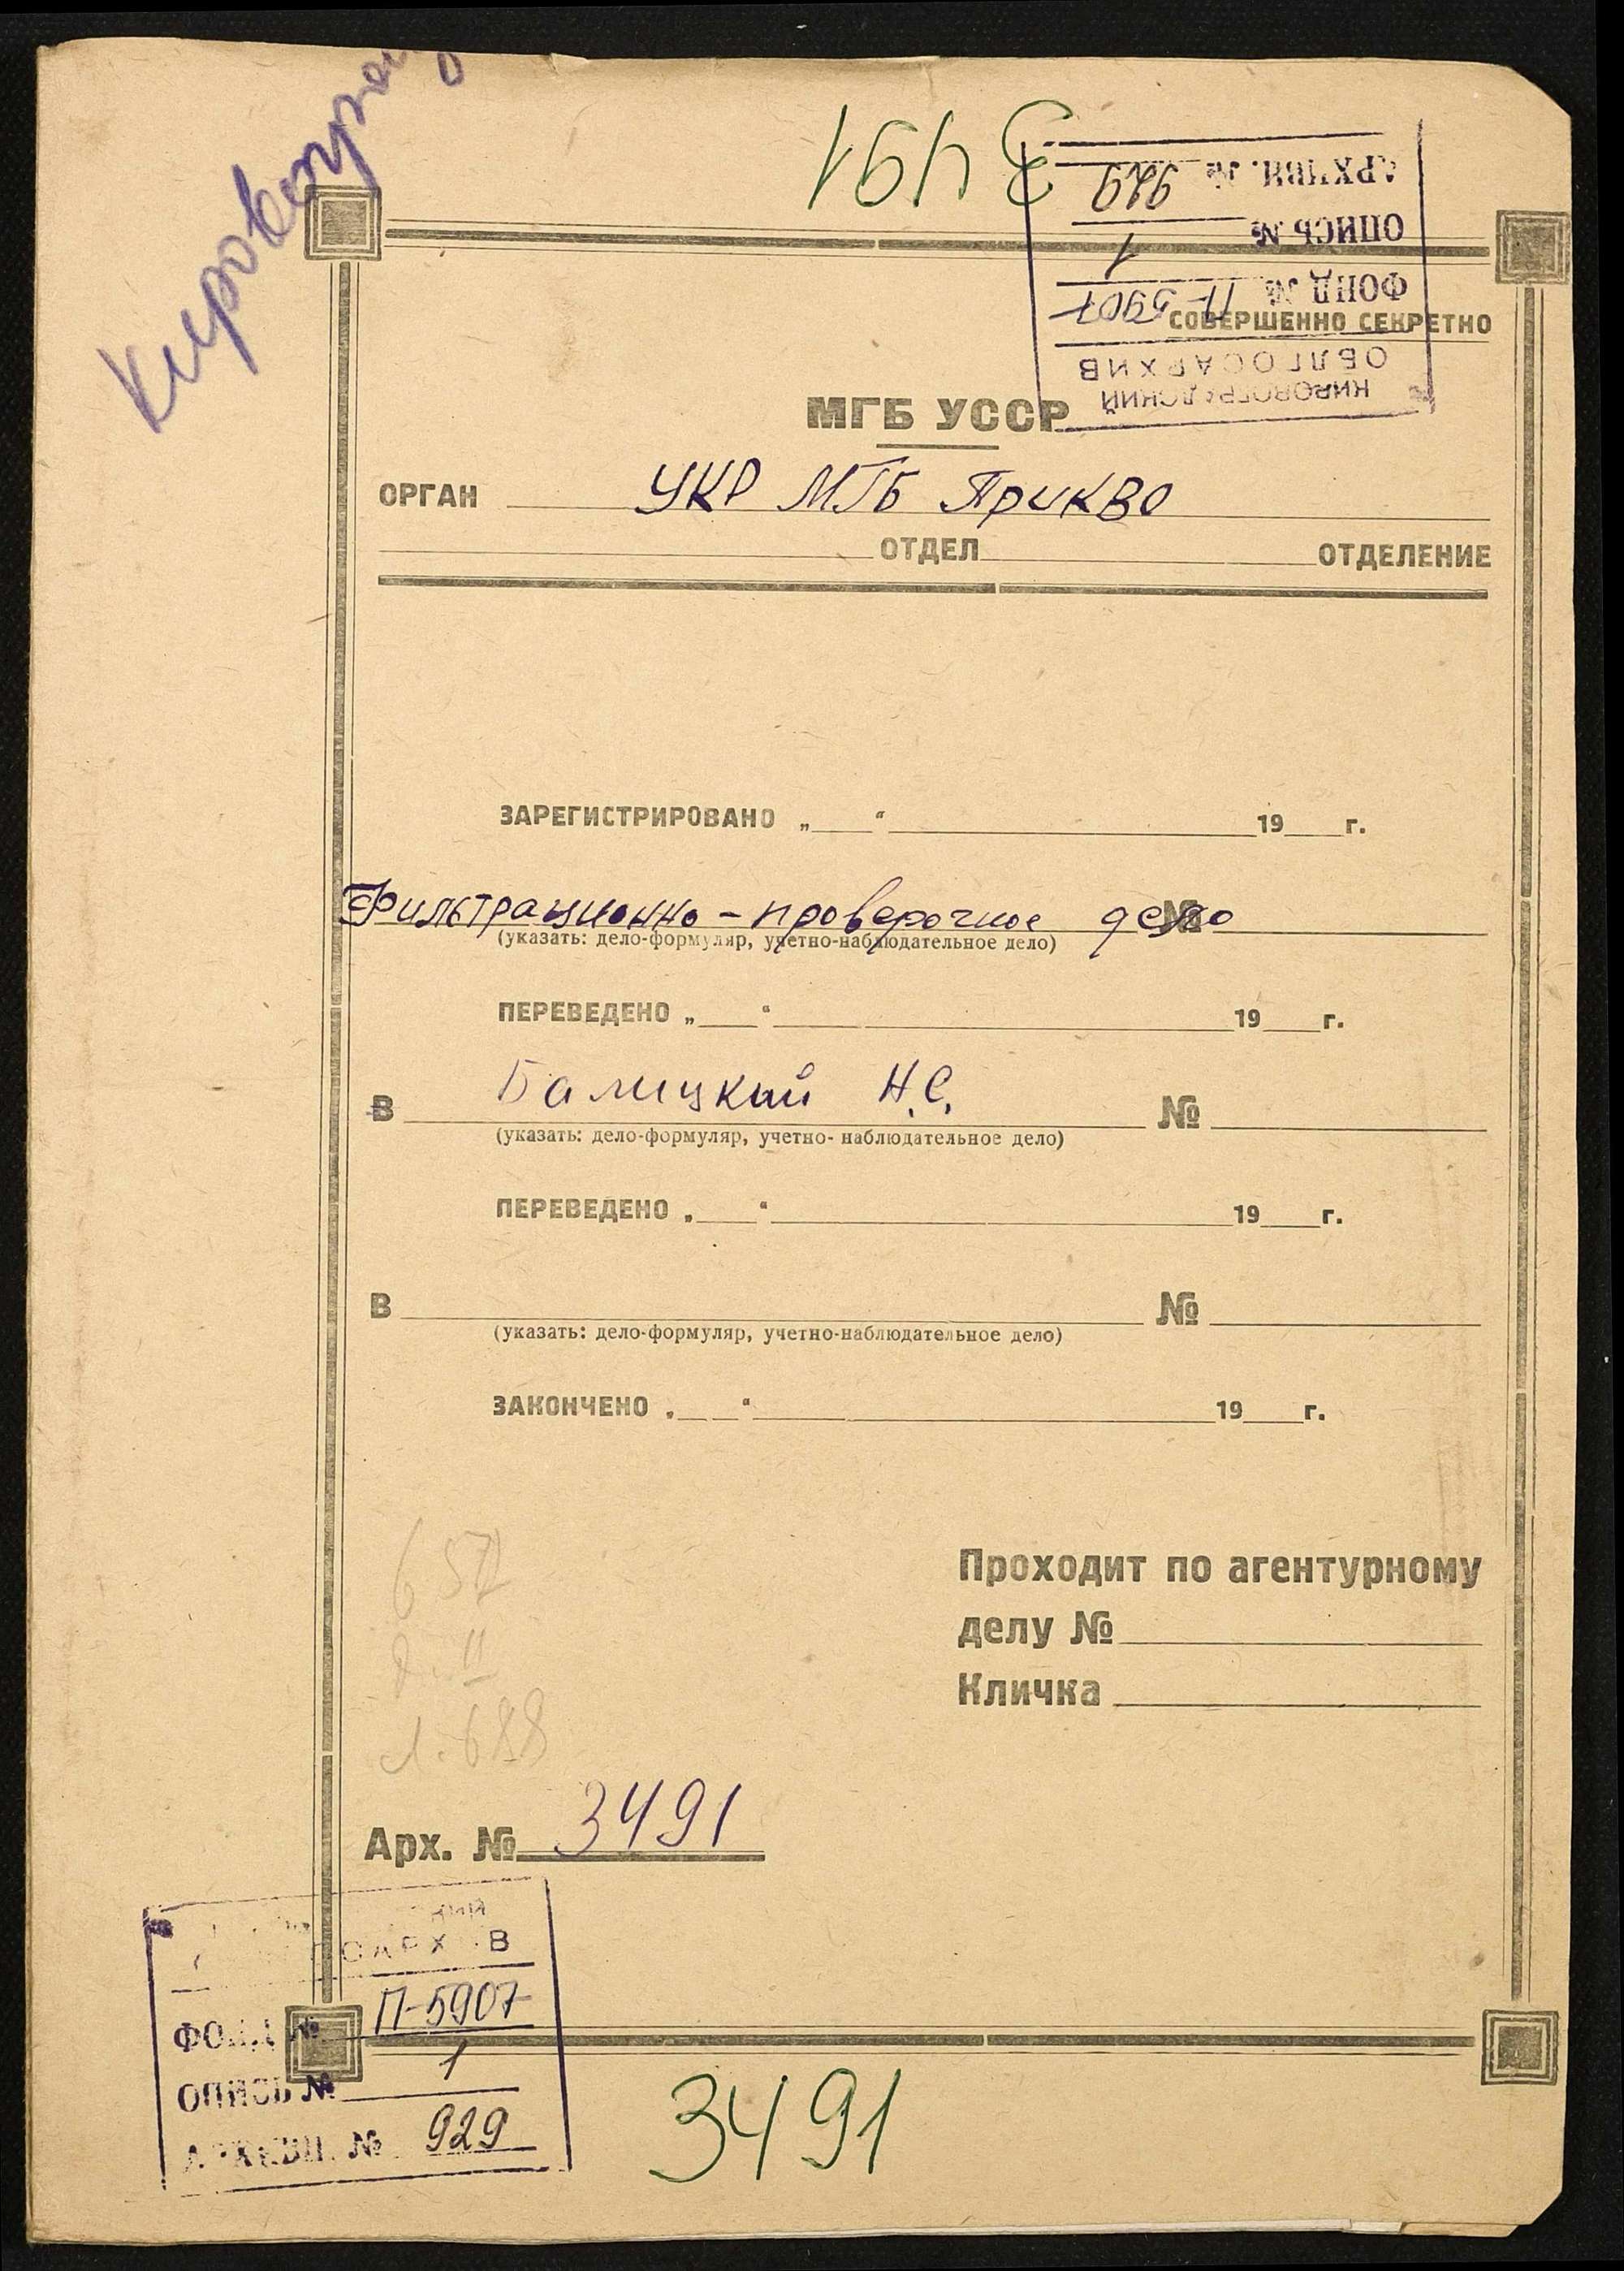 Кировоград
3491
АРХИВН. № 929
ОПИСЬ № 1
ФОНД № П-5907
КИРОВОГРАДСКИЙ
ОБЛГОСАРХИВ
СОВЕРШЕННО СЕКРЕТНО
МГБ УССР
ОРГАН УКР МГБ ПрикВО
ОТДЕЛ ОТДЕЛЕНИЕ
ЗАРЕГИСТРИРОВАНО „ “ 19 г.
Фильтрационно-проверочное дело №
(указать: дело-формуляр, учетно-наблюдательное дело)
ПЕРЕВЕДЕНО „ “ 19 г.
В Балицкий Н.С. №
(указать: дело-формуляр, учетно- наблюдательное дело)
ПЕРЕВЕДЕНО „ “ 19 г.
В №
(указать: дело-формуляр, учетно-наблюдательное дело)
ЗАКОНЧЕНО „ “ 19 г.
Проходит по агентурному
делу №
Кличка
л. 688
Арх. № 3491
ФОНД № П-5907
ОПИСЬ № 1
АРХИВН. № 929
3491